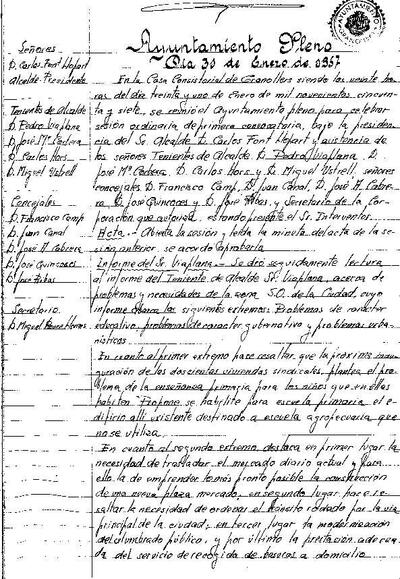 Ayuntamiento Pleno
Dia 30 de Enero de 1957
Señores
D. Carlos Font Llopart
Alcalde-Presidente
Tenientes de Alcalde
D. Pedro Viaplana
D. José Mª Cabrera
D. Carlos Hors
D. Miguel Ustrell
Concejales
D. Francisco Camp
D. Juan Canal
D. José M. Cabrera
D. José Quincoces
D. José Ribas
Secretario
D. Miguel
En la Casa Consistorial de Granollers siendo las veinte ho
ras del dia treinta y uno de Enero de mil novecientos cincuen
ta y siete, se reunió el Ayuntamiento pleno para celebrar
sesión ordinaria de primera convocatoria, bajo la presiden
cia del Sr. Alcalde D. Carlos Font Llopart y asistencia de
los señores Tenientes de Alcalde D. Pedro Viaplana, D.
José Mª Cabrera, D. Carlos Hors y D. Miguel Ustrell, señores
concejales D. Francisco Camp, D. Juan Canal, D. José M. Cabre
ra, D. José Quincoces y D. José Ribas, y Secretario de la Cor
poración que autoriza, estando presente el Sr. Interventor.
Acta.- Abierta la sesión y leida la minuta del acta de la se
sión anterior, se acordó aprobarla
Informe del Sr. Viaplana.- Se dió seguidamente lectura
al informe del Teniente de Alcalde Sr. Viaplana, acerca de
problemas y necesidades de la zona S.O. de la Ciudad, cuyo
informe abarca los siguientes extremos: Problemas de carácter
educativo, problemas de caracter gubernativo y problemas urba
nísticos.
En cuanto al primer extremo hace resaltar, que la próxima inau
guración de las doscientas viviendas sindicales, plantea el pro
blema, de la enseñanza primaria para los niños que en ellas
habiten. Propone, se habilite para escuela primaria el e-
dificio allí existente destinado a escuela agropecuaria que
no se utiliza.
En cuanto al segundo extremo destaca en primer lugar la
necesidad de trasladar el mercado diario actual y para
ello, la de emprender lo más pronto posible la construcción
de una nueva plaza mercado, en segundo lugar hace re
saltar la necesidad de ordenar el tránsito rodado por la via
principal de la ciudad, en tercer lugar la modernización
del alumbrado público, y por último la prestación adecua
da del servicio de recogida de basuras a domicilio